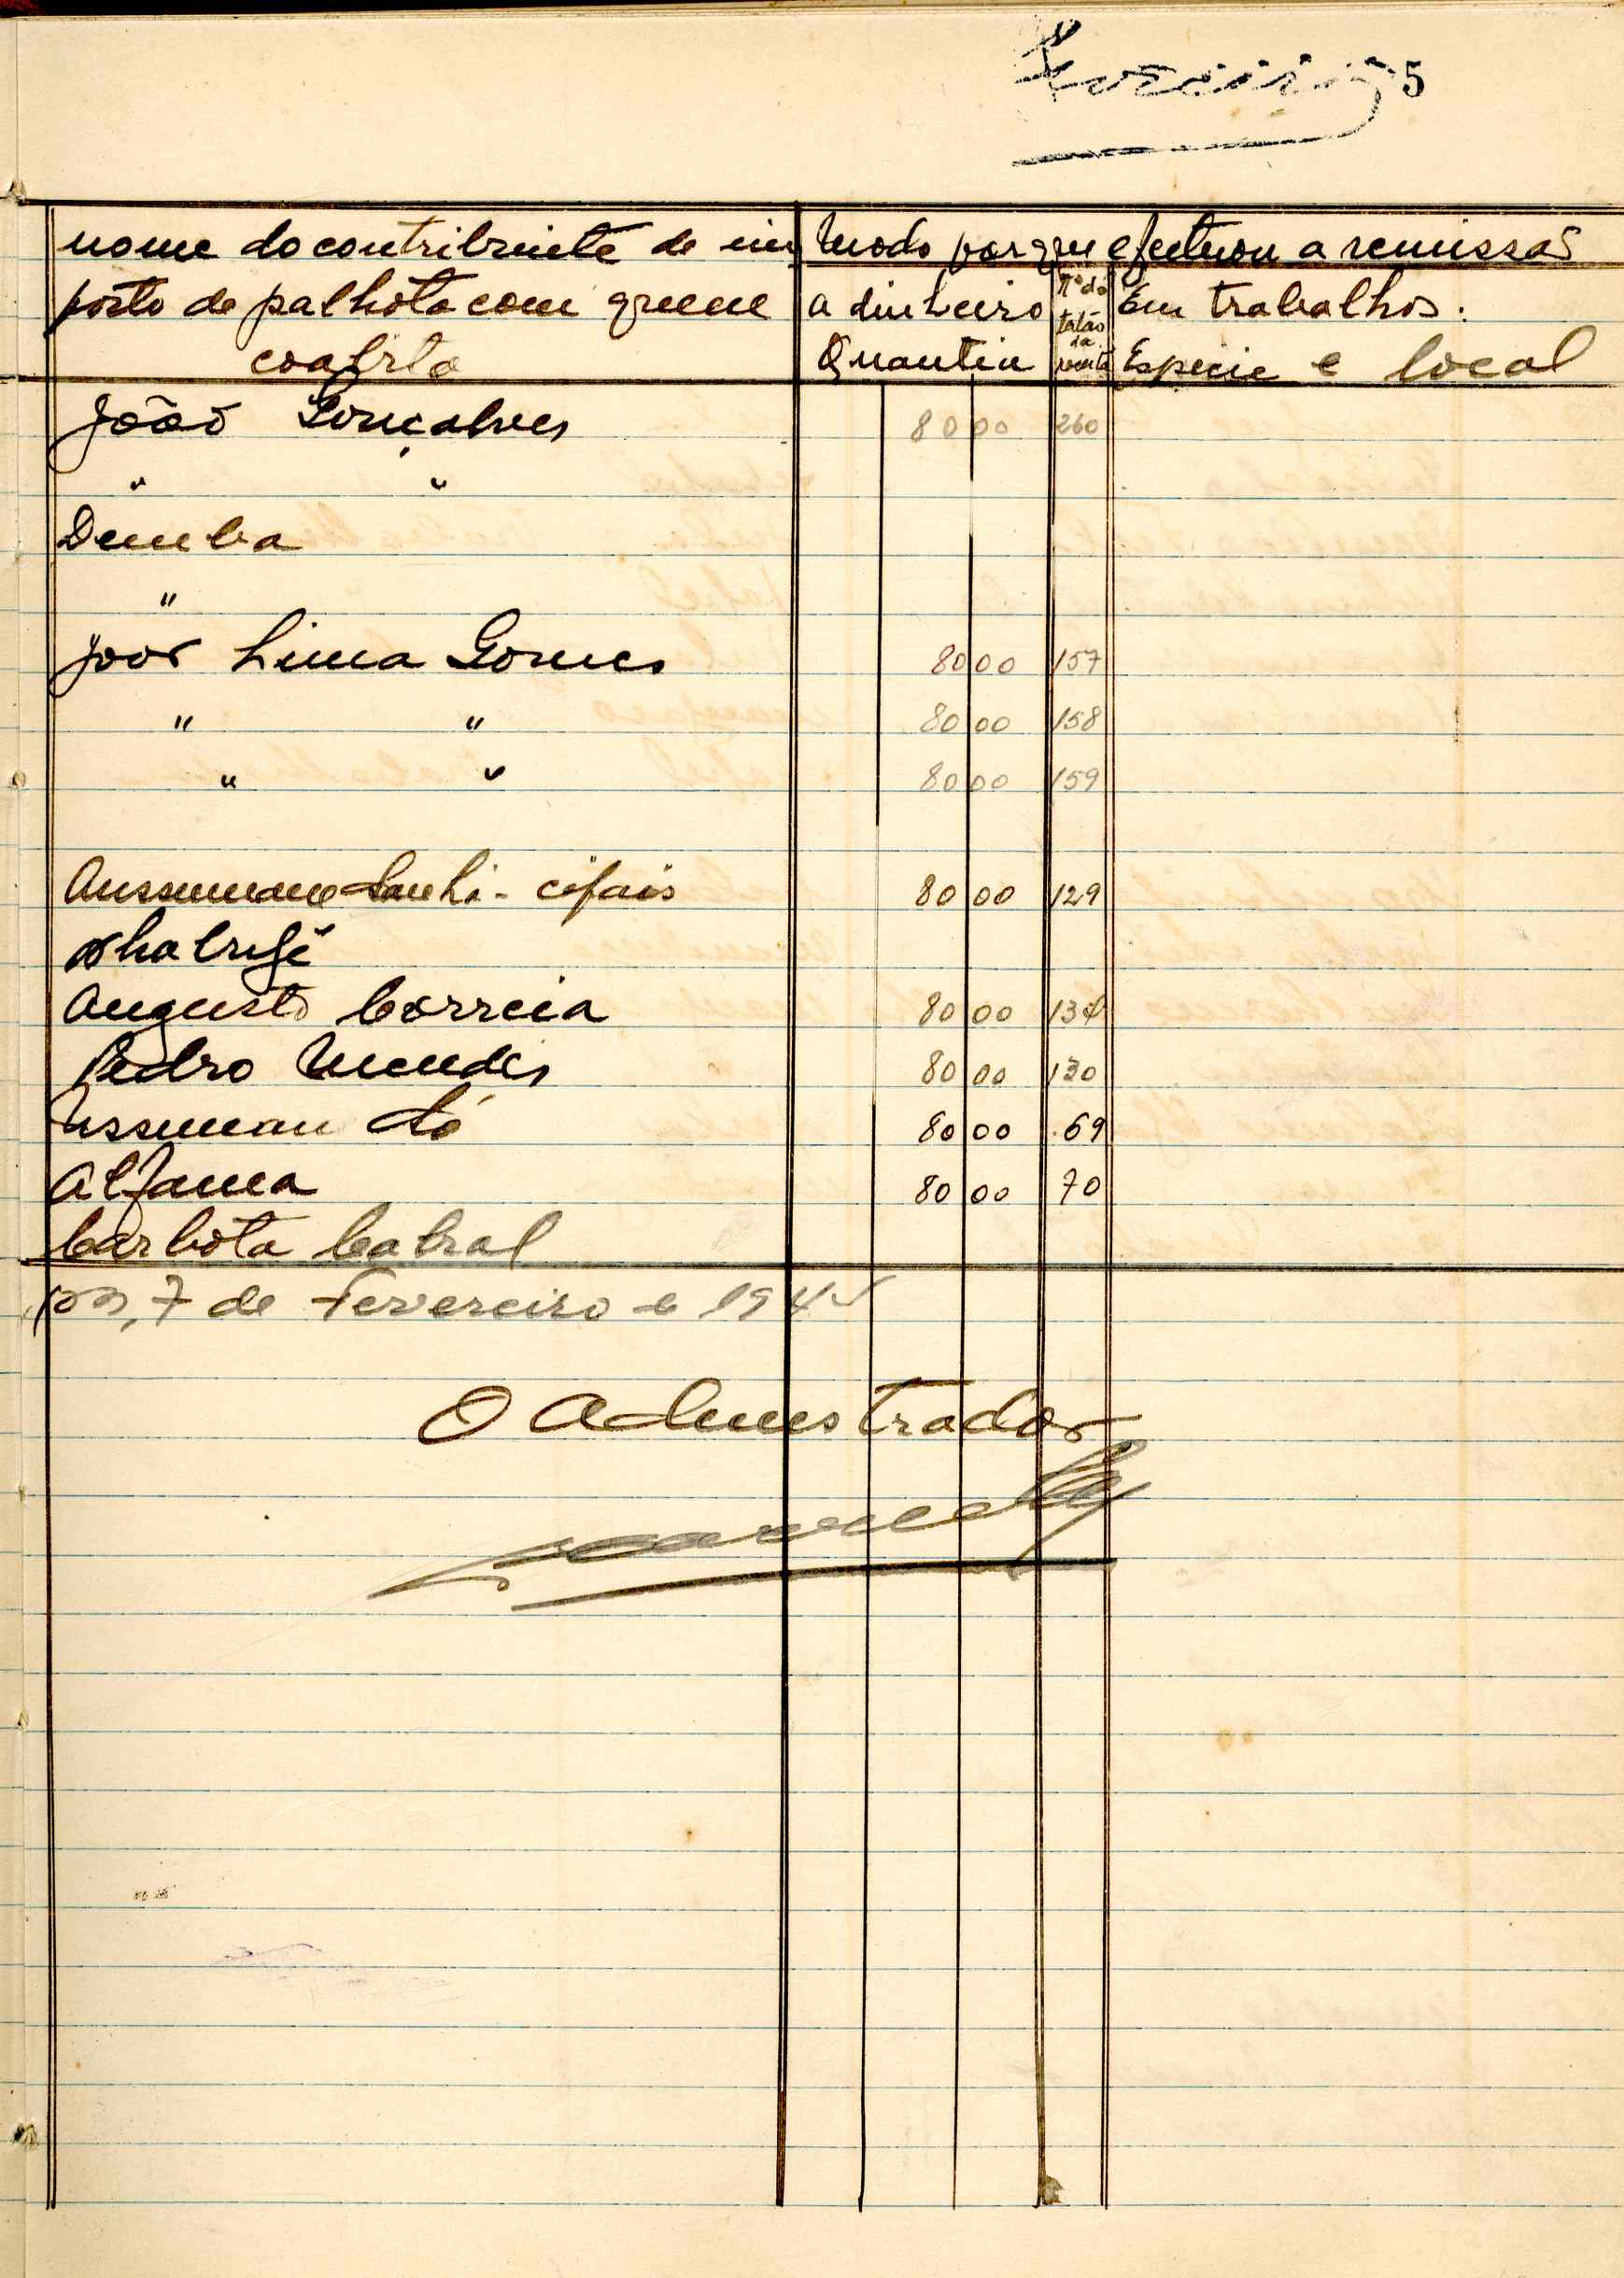 5
nome do contribuinte de im
posto de palhota com quem
coabita
Modo porque efectuou a remissão
a dinheiro
Quantia
Nº do talão da
Em trabalhos.
Especie e local
João Gonçalves 80 00 260
" "
Demba
"
João Lima Gomes 80 00 157
" " 80 00 158
" " 80 00 159
80 00 129
Augusto Correia 80 00
Pedro Mendes 80 00 130
80 00 69
Alfama 80 00 70
Carlota Cabral
7 de Fevereiro de 194
O Administrador